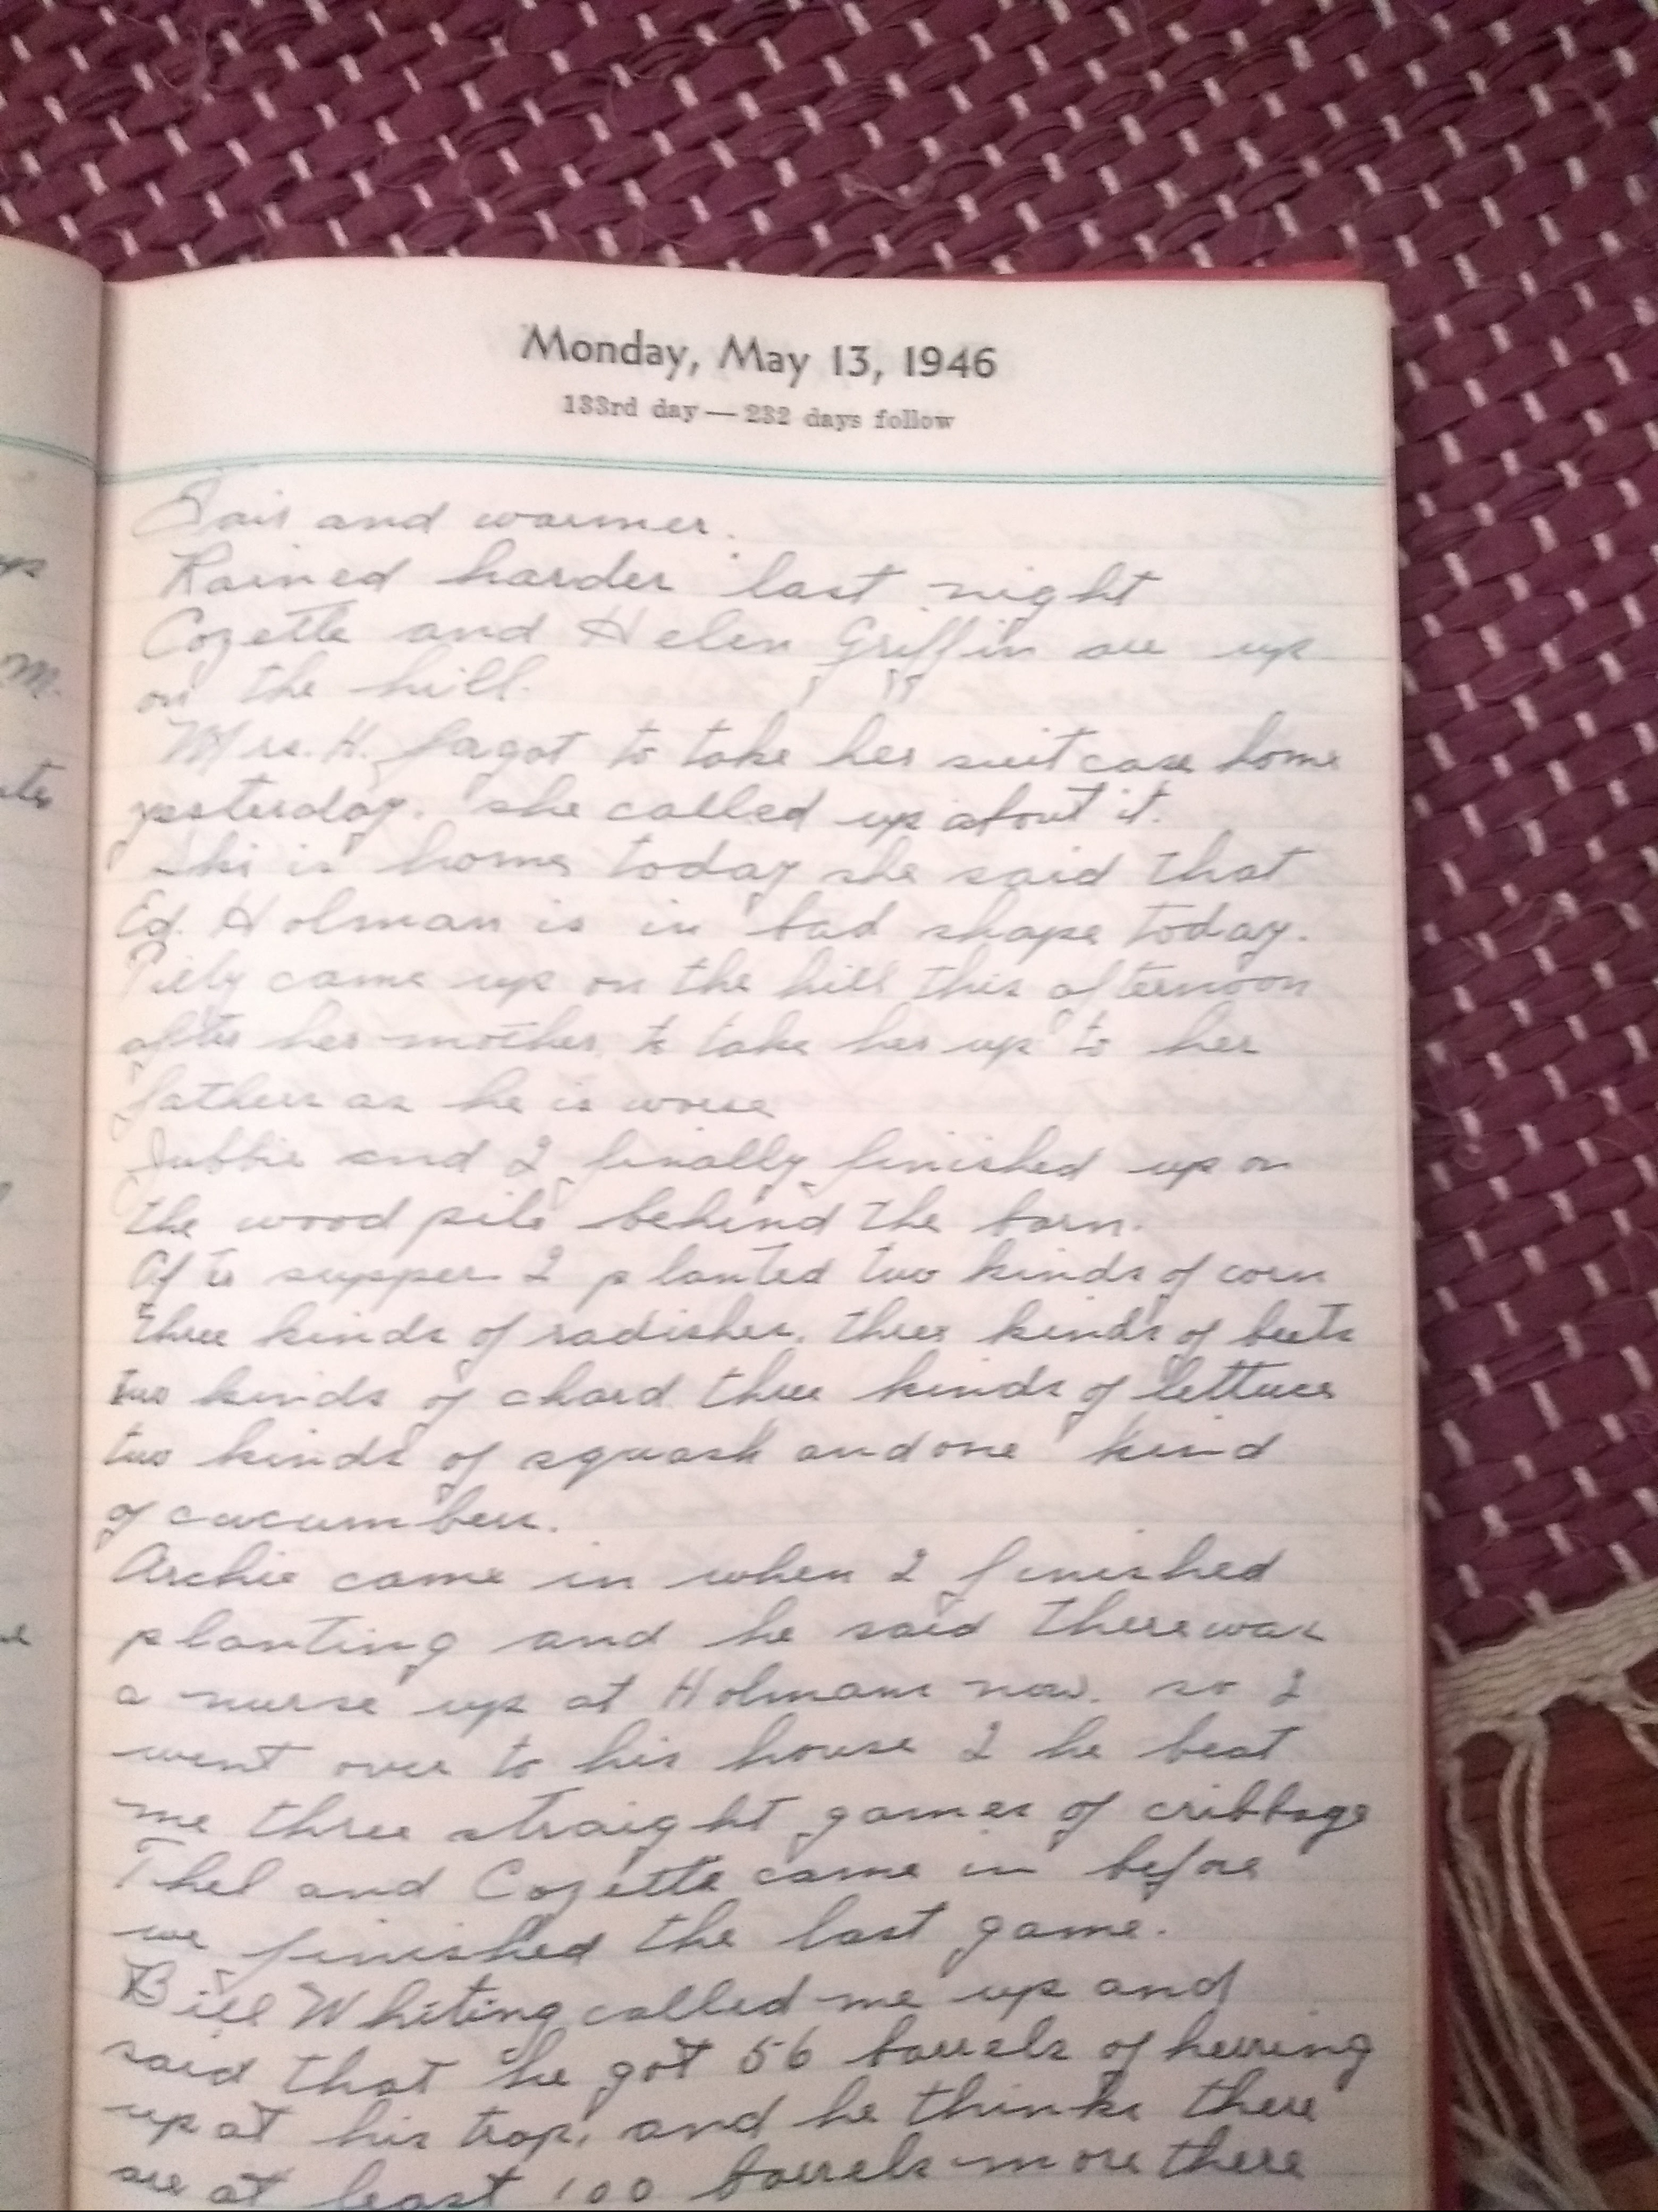 Monday, May 13, 1946
133rd day — 232 days follow
Fair and warmer.
Rained harder last night
Cozette and Helen Griffin are up
on the hill.
Mrs. H. fagot to take her suit case home
yesterday. she called up about it.
is home today she said that
Ed. Holman is in bad shape today.
came up on the hill this afternoon
after her mother to take her up to her
fathers as he is worse
and I finally finished up on
the wood pile behind the barn.
Afte supper I planted two kinds of corn
three kinds of radishes, three kinds of beets
two kinds of chard three kinds of lettuce
two kinds of squash and one kind
of cucumbers.
Archie came in when I finished
planting and he said there was
a nurse up at Holmans now. so I
went over to his house & he beat
me three straight games of cribbage
Thel and Cozette came in before
we finished the last game.
Bill Whiting called me up and
said that he got 56 barrels of herring
up at his trap, and he thinks there
are at least 100 barrels more there